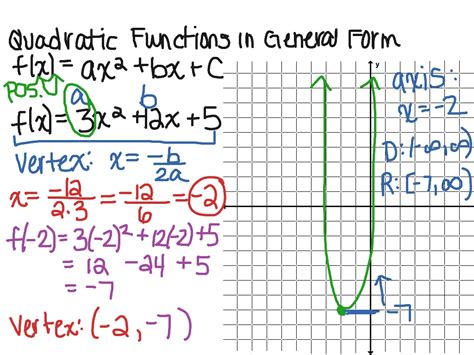 Quadratic Functions in General Form
f(x) = ax² + bx + C
POS. a b
f(x) = 3x² + 12x + 5
Vertex: x = -b/2a
x = -12/2·3 = -12/6 = -2
f(-2) = 3(-2)² + 12(-2) + 5
= 12 - 24 + 5
= -7
Vertex: (-2, -7)
y
axis:
x = -2
D: (-∞, ∞)
R: [-7, ∞)
-7